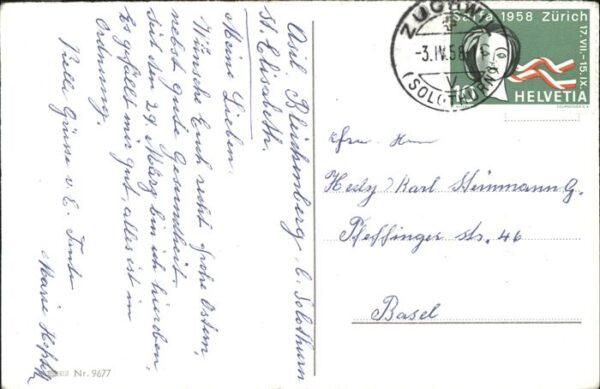 Asil. Bleichenberg b. Solothurn
St. Elisabeth.
Meine Lieben.
Wünsche Euch recht frohe Ostern,
nebst gute Gesundheit.
Seit den 29 März bin ich hier oben,
Es gefällt mir gut, alles ist in
Ordnung.
Viele Grüsse v. E. Tante
Marie
Nr. 9677
ZUCHWIL
-3.IV.58
(SOLOTHURN)
Saffa 1958 Zürich
17.VII.-15.IX.
10
HELVETIA
Hedy / Karl Steinmann G.
Pfeffinger str. 46
Basel